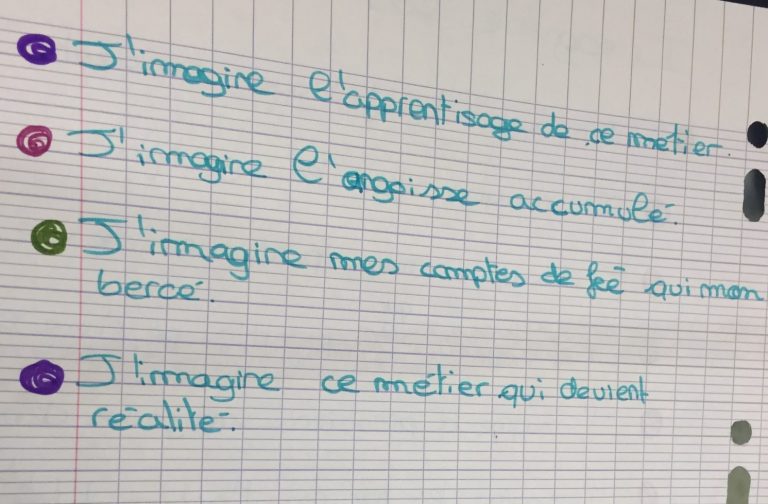 J'imagine l'apprentisage de ce métier.
J'imagine l'angoisse accumulé.
J'imagine mes comptes de feé qui mon
bercé.
J'imagine ce métier qui devient
réalité.